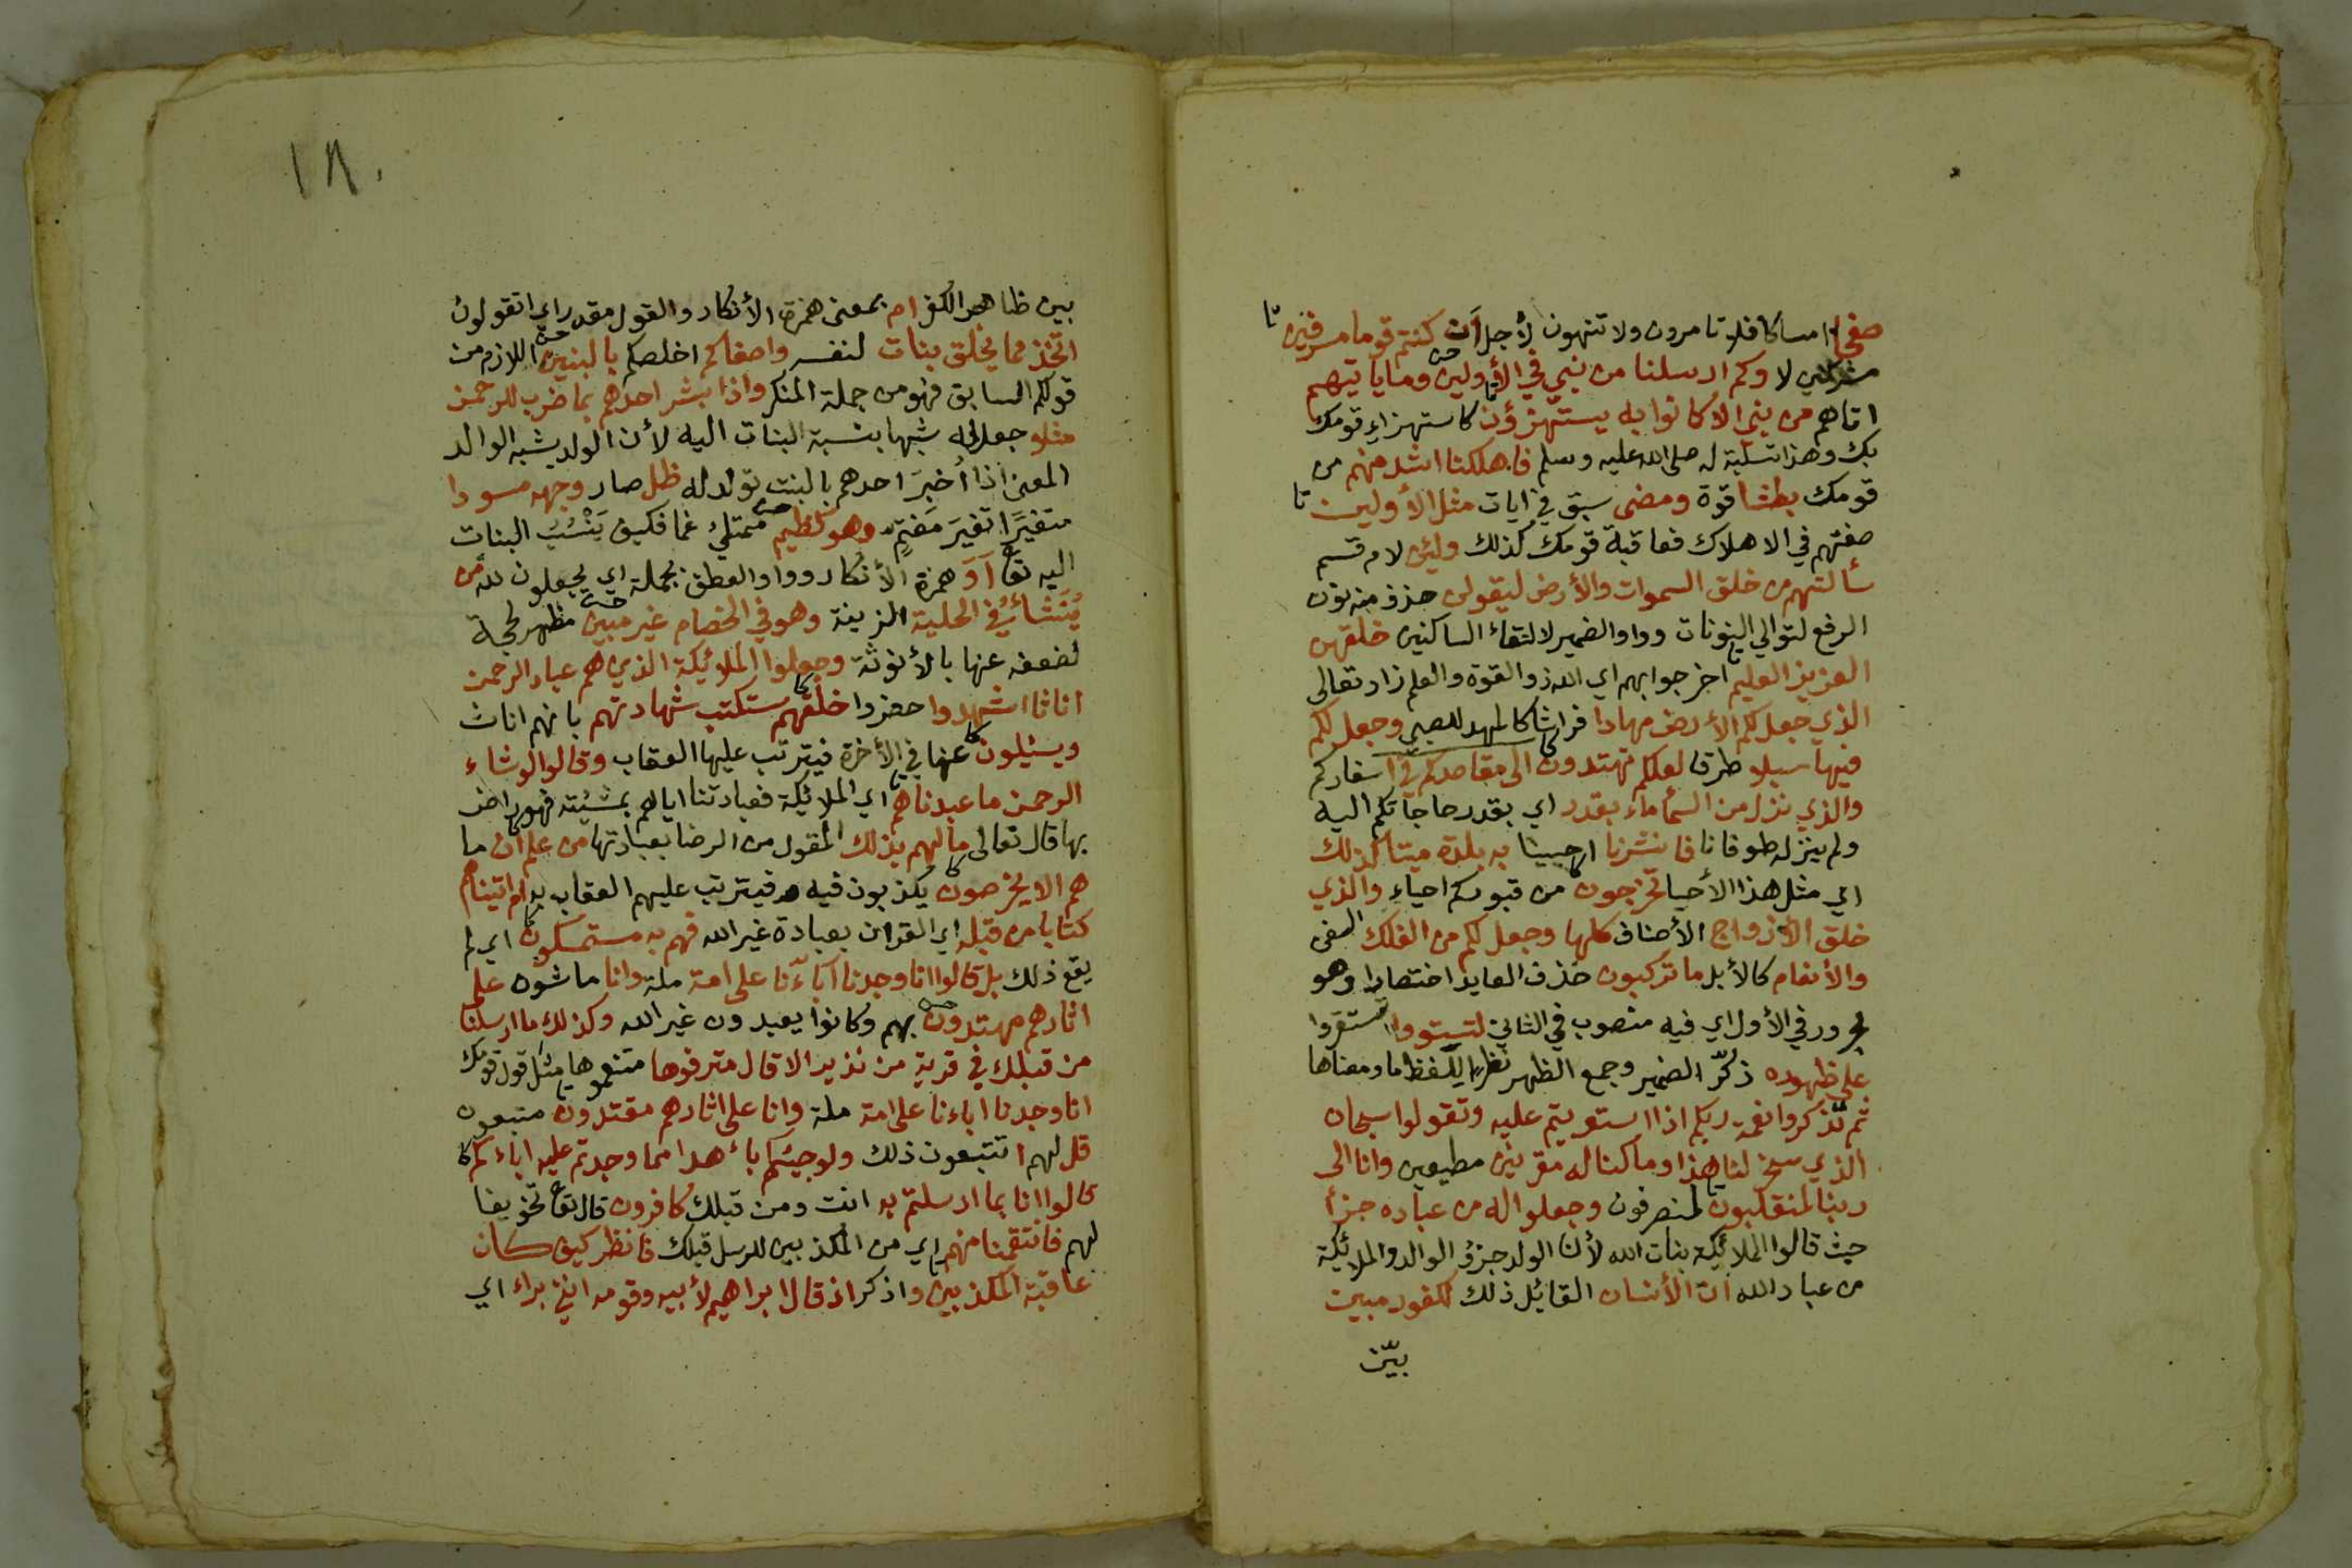 صفحا امساكا فلا تامرون ولا تنهون لأجل أن كنتم قوما مسرفين
مشركين لا وكم ارسلنا من نبي في الأولين وما ياتيهم
اتاهم من نبي الا كانوا به يستهزؤن كاستهزاء قومك
بك وهذا تسلية له صلى الله عليه وسلم فاهلكنا اشد منهم من
قومك بطشا قوة ومضى سبق في ايات مثل الأولين
صفتهم في الاهلاك فعاقبة قومك كذلك ولئن لام قسم
سألتهم من خلق السموات والأرض ليقولن حذف منه نون
الرفع لتوالي النونات وواو الضمير لالتقاء الساكنين خلقهن
العزيز العليم اخر جوابهم اي الله ذو القوة والعلم زاد تعالى
الذي جعل لكم الأرض مهادا فراشا كالمهد للصبي وجعل لكم
فيها سبلا طرقا لعلكم تهتدون الى مقاصدكم في اسفاركم
والذي نزل من السماء ماء بقدر اي بقدر حاجاتكم اليه
ولم ينزله طوفانا فانشرنا احيينا به بلدة ميتا كذلك
اي مثل هذا الأحيا تخرجون من قبوركم احياء والذي
خلق الأزواج الأصناف كلها وجعل لكم من الفلك السفن
والأنعام كالأبل ما تركبون حذف العايد اختصارا وهو
مجرور في الأول اي فيه منصوب في الثاني لتستووا لتستقروا
على ظهوره ذكر الضمير وجمع الظهر نظرا للفظ ما ومعناها
ثم تذكروا نعمة ربكم اذا استويتم عليه وتقولوا سبحان
الذي سخر لنا هذا وما كنا له مقرنين مطيعين وانا الى
ربنا لمنقلبون لمنصرفون وجعلوا له من عباده جزأ
حيث قالوا الملائكة بنات الله لأن الولد جزؤ الوالد والملائكة
من عباد الله ان الأنسان القائل ذلك لكفور مبين
بيّن
١٨٠
بين ظاهر الكفر ام بمعنى همزة الأنكار والقول مقدر اي اتقولون
اتخذ مما يخلق بنات لنفسه واصفاكم اخلصكم بالبنين اللازم من
قولكم السابق فهو من جملة المنكر واذا بشر احدهم بما ضرب للرحمن
مثلا جعل له شبها بنسبة البنات اليه لأن الولد يشبه الوالد
المعنى اذا أخبر احدهم بالبنت تولد له ظل صار وجهه مسودا
متغيرا تغير مغتم وهو كظيم ممتلئ غما فكيف ينسب البنات
اليه تعا أو همزة الأنكار وواو العطف بجملة اي يجعلون لله من
ينشاء في الحلية الزينة وهو في الخصام غير مبين مظهر لحجة
لضعفه عنها بالأنوثة وجعلوا الملائكة الذين هم عباد الرحمن
اناثا اشهدوا حضروا خلقهم ستكتب شهادتهم بانهم اناث
ويسئلون عنها في الأخرة فيترتب عليها العقاب وقالوا لو شاء
الرحمن ما عبدناهم اي الملائكة فعبادتنا اياهم بمشيئته فهو راض
بها قال تعالى ما لهم بذلك المقول من الرضا بعبادتها من علم ان ما
هم الا يخرصون يكذبون فيه فيترتب عليهم العقاب به ام اتيناهم
كتابا من قبله اي القران بعبادة غير الله فهم به مستمسكون اي لم
يقع ذلك بل قالوا انا وجدنا آباءنا على امة ملة وانا ماشون على
اثارهم مهتدون بهم وكانوا يعبدون غير الله وكذلك ما ارسلنا
من قبلك في قرية من نذير الا قال مترفوها متنعموها مثل قول قومك
انا وجدنا اباءنا على امة ملة وانا على اثارهم مقتدون متبعون
قل لهم اتتبعون ذلك ولو جئتكم باهدا مما وجدتم عليه اباءكم
قالوا انا بما ارسلتم به انت ومن قبلك كافرون قال تعا تخويفا
لهم فانتقمنا منهم اي من المكذبين للرسل قبلك فانظر كيف كان
عاقبة المكذبين واذكر اذ قال ابراهيم لأبيه وقومه انني براء اي